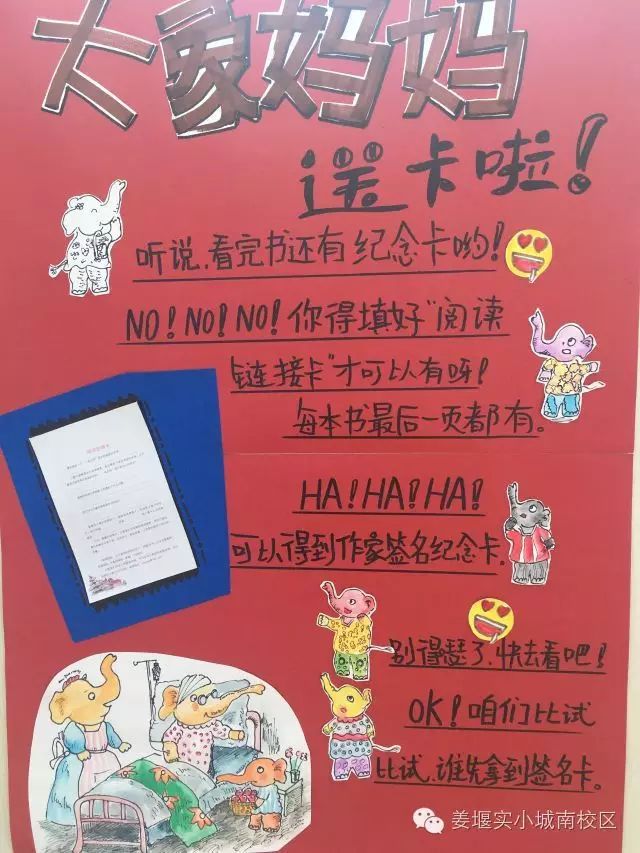 大象妈妈
送卡啦！
听说，看完书还有纪念卡哟！
NO！NO！NO！你得填好"阅读
链接卡"才可以有呀！
每本书最后一页都有。
HA！HA！HA！
可以得到作家签名纪念卡。
别得瑟了，快去看吧！
OK！咱们比试
比试，谁先拿到签名卡。
姜堰实小城南校区